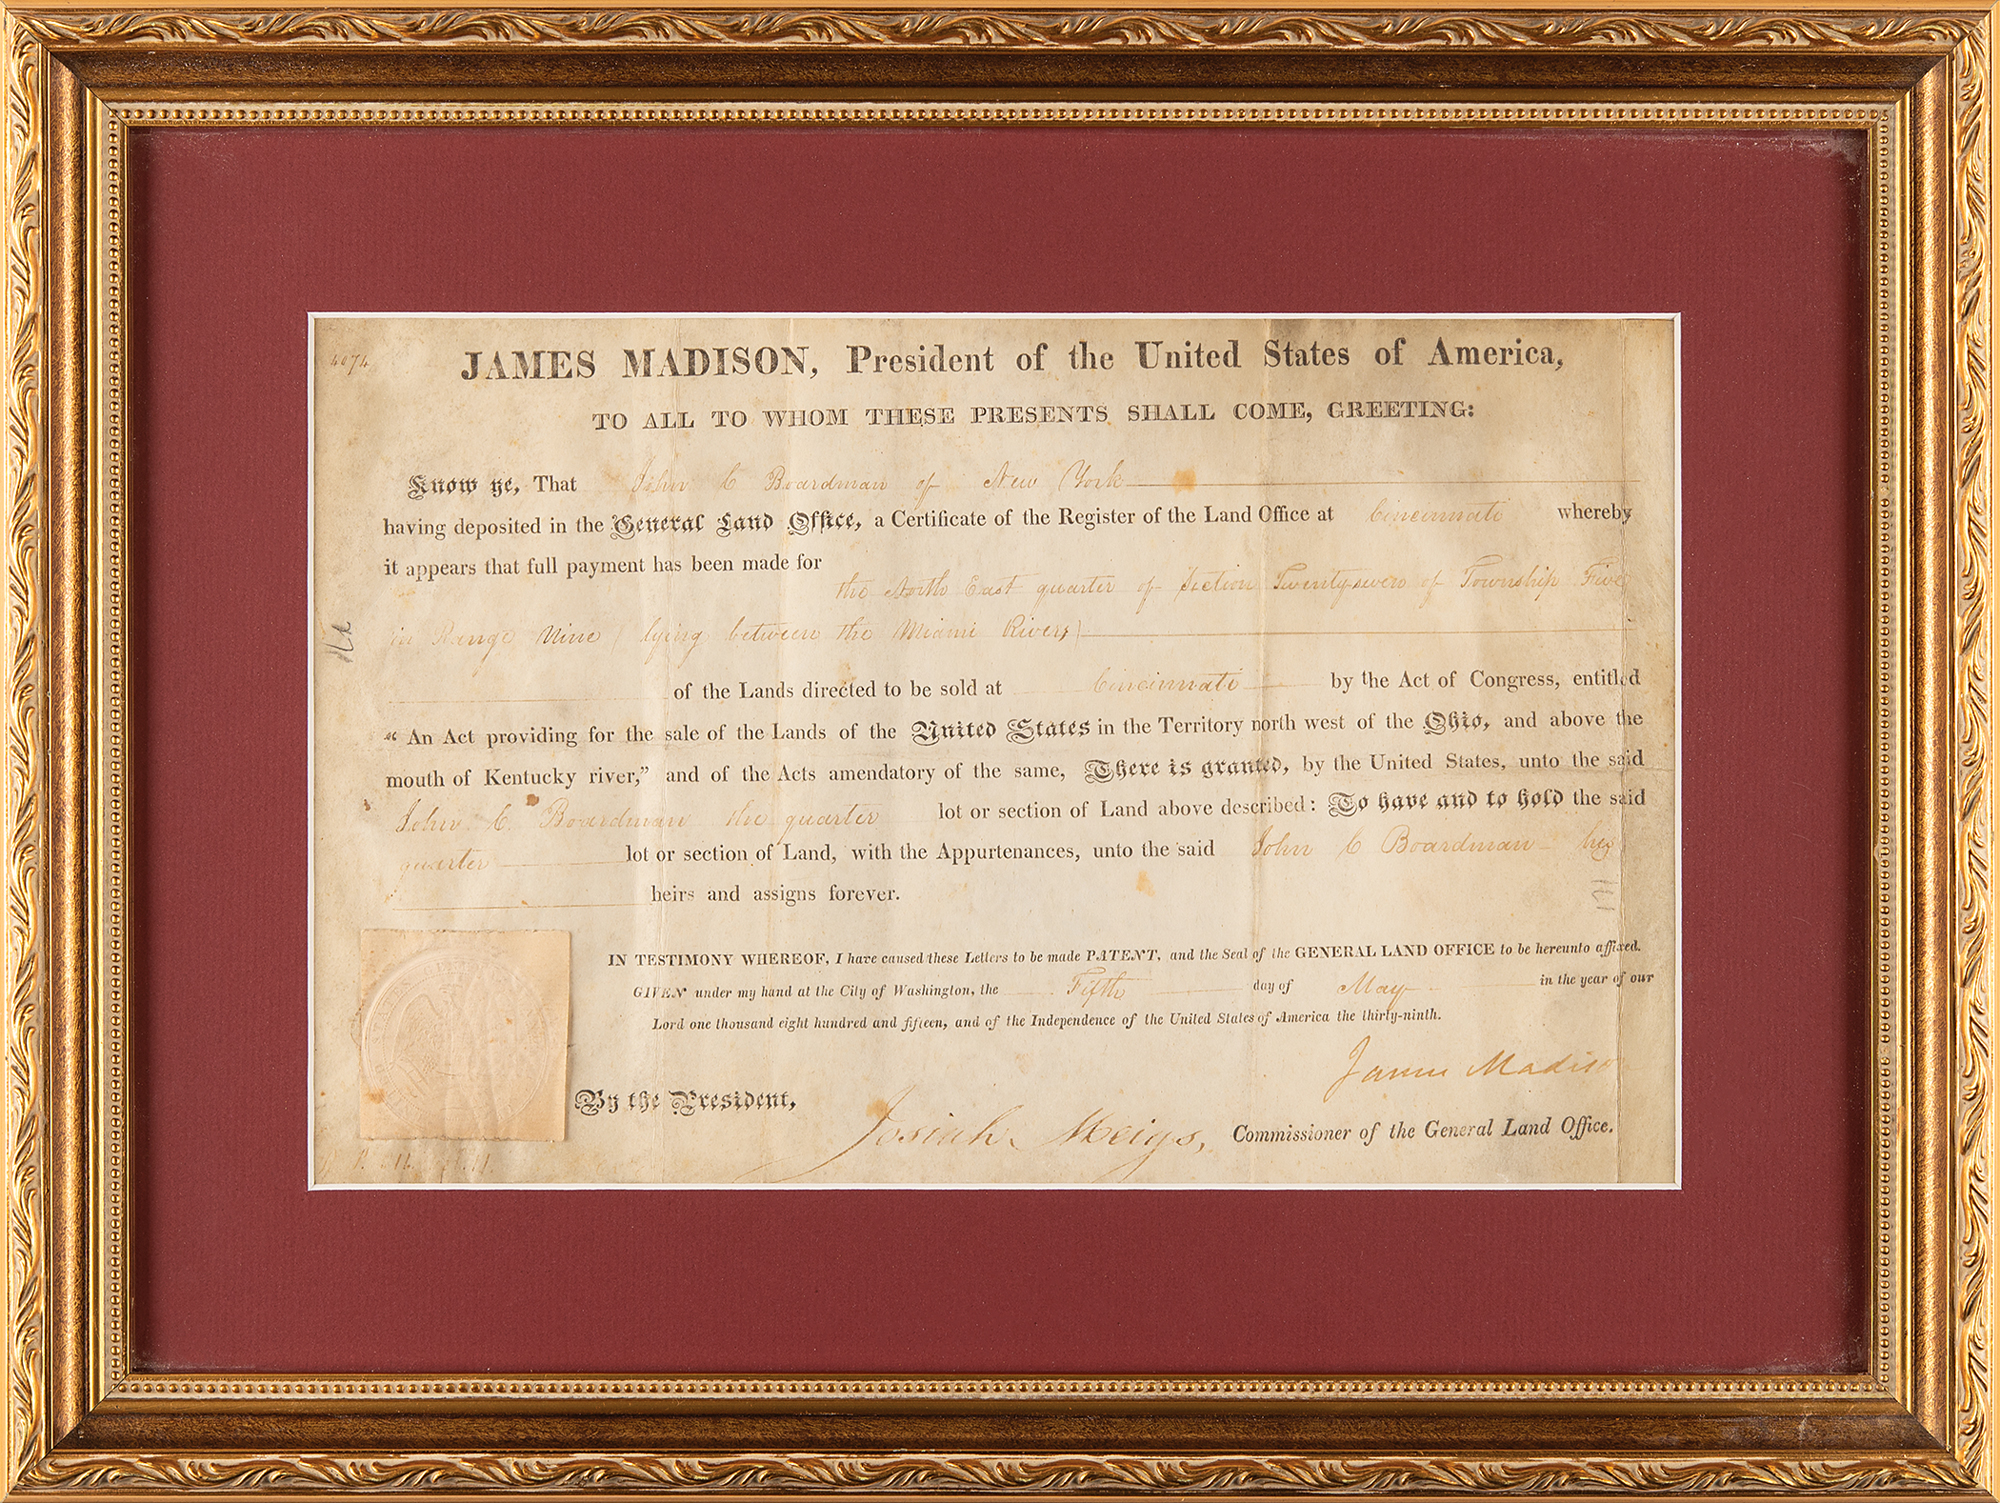 4074
JAMES MADISON, President of the United States of America,
TO ALL TO WHOM THESE PRESENTS SHALL COME, GREETING:
Know ye, That John C Boardman of New York
having deposited in the General Land Office, a Certificate of the Register of the Land Office at Cincinnati whereby
it appears that full payment has been made for the North East quarter of Section Twenty seven of Township Five
in Range Nine (lying between the Miami Rivers)
of the Lands directed to be sold at Cincinnati by the Act of Congress, entitled
“ An Act providing for the sale of the Lands of the United States in the Territory north west of the Ohio, and above the
mouth of Kentucky river,” and of the Acts amendatory of the same, There is granted, by the United States, unto the said
John C. Boardman the quarter lot or section of Land above described: To have and to hold the said
quarter lot or section of Land, with the Appurtenances, unto the said John C Boardman his
heirs and assigns forever.
IN TESTIMONY WHEREOF, I have caused these Letters to be made PATENT, and the Seal of the GENERAL LAND OFFICE to be hereunto affixed.
GIVEN under my hand at the City of Washington, the Fifth day of May in the year of our
Lord one thousand eight hundred and fifteen, and of the Independence of the United States of America the thirty-ninth.
James Madison
By the President,
Josiah Meigs, Commissioner of the General Land Office.